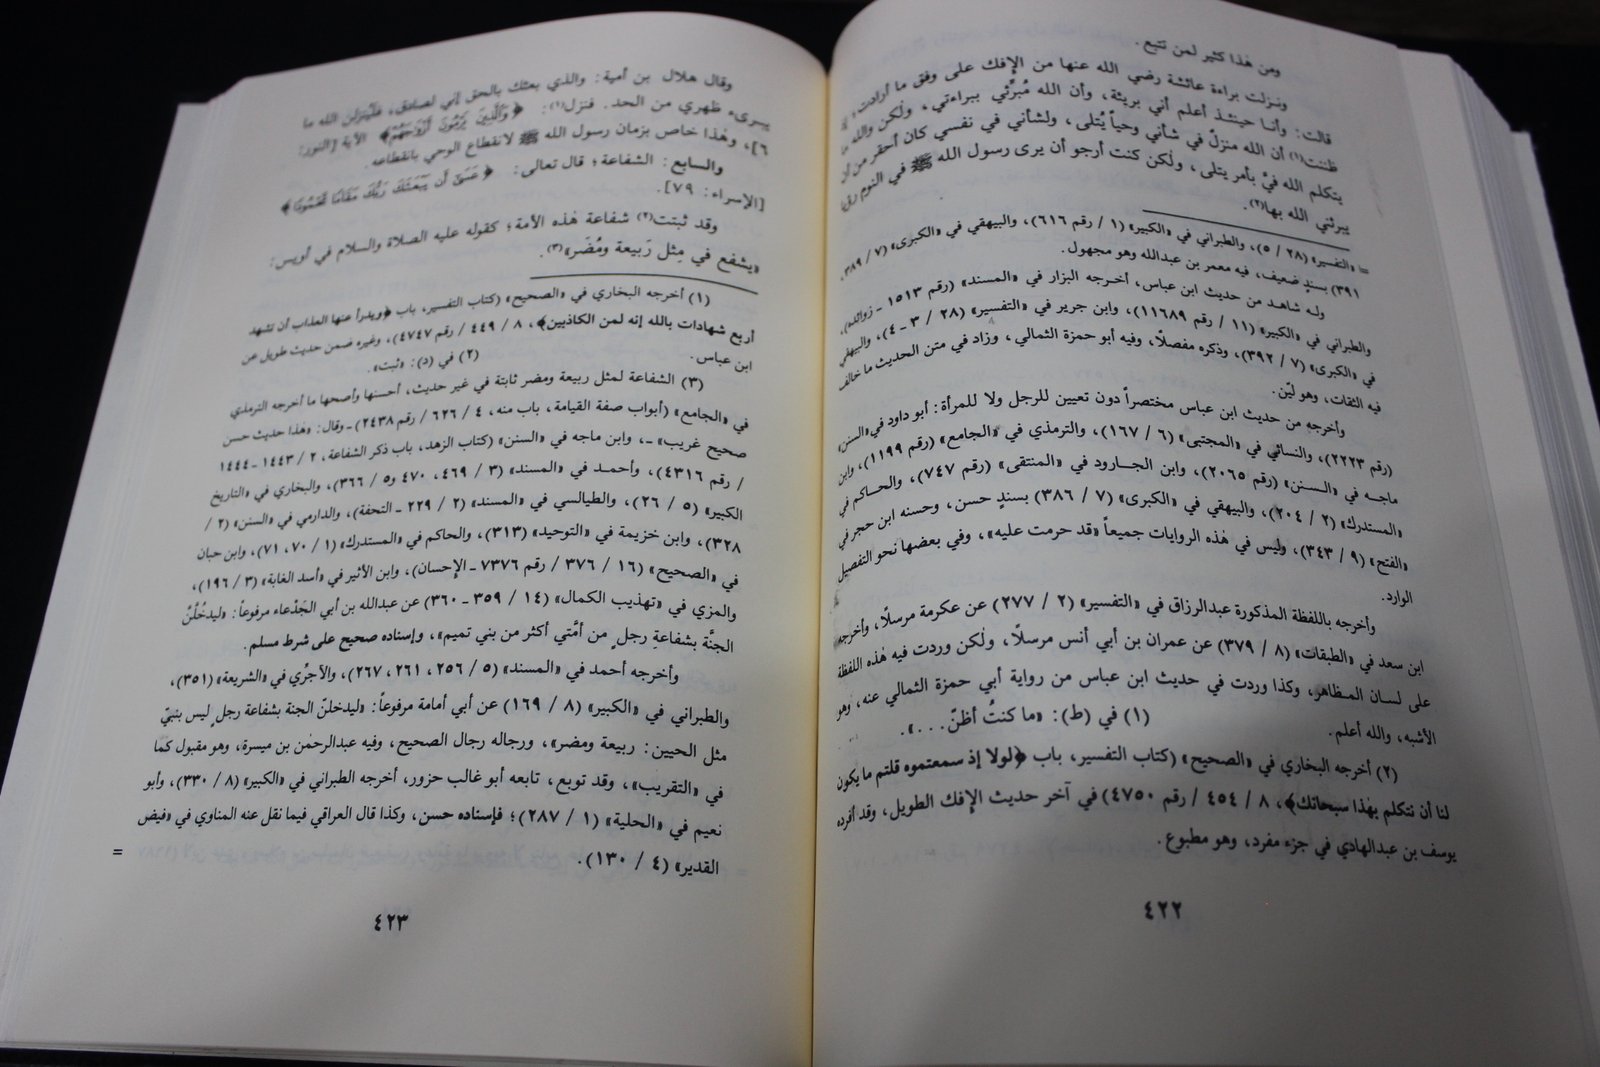 ومن هٰذا كثير لمن تتبع.
ونـزلت براءة عائشة رضي الله عنها من الإفك على وفق ما أرادت؛
قالت: وأنـا حينئـذ أعلم أني بريئة، وأن الله مُبرِّئي ببراءتي، ولٰكن والله ما
ظننت(١) أن الله منزلٌ في شأني وحياً يُتلى، ولشأني في نفسي كان أحقر من أن
يتكلم الله فيَّ بأمر يتلى، ولٰكن كنت أرجو أن يرى رسول الله ﷺ في النوم رؤيا
يبرئني الله بها(٢).
= «التفسير» (٢٨ / ٥)، والطبراني في «الكبير» (١ / رقم ٦١٦)، والبيهقي في «الكبرى» (٧ / ٣٨٩،
٣٩١) بسندٍ ضعيف، فيه معمر بن عبدالله وهو مجهول.
ولـه شاهـد من حديث ابن عباس، أخـرجه البزار في «المسند» (رقم ١٥١٣ ـ زوائده)،
والطبراني في «الكبير» (١١ / رقم ١١٦٨٩)، وابن جرير في «التفسير» (٢٨ / ٣ ـ ٤)، والبيهقي
في «الكبرى» (٧ / ٣٩٢)، وذكره مفصلًا، وفيه أبو حمزة الثمالي، وزاد في متن الحديث ما خالف
فيه الثقات، وهو ليّن.
وأخرجه من حديث ابن عباس مختصراً دون تعيين للرجل ولا للمرأة: أبو داود في «السنن»
(رقم ٢٢٢٣)، والنسائي في «المجتبى» (٦ / ١٦٧)، والترمذي في «الجامع» (رقم ١١٩٩)، وابن
ماجـه في «الـسـنن» (رقم ٢٠٦٥)، وابن الجـارود في «المنتقى» (رقم ٧٤٧)، والحـاكم في
«المستدرك» (٢ / ٢٠٤)، والبيهقي في «الكبرى» (٧ / ٣٨٦) بسندٍ حسن، وحسنه ابن حجر في
«الفتح» (٩ / ٣٤٣)، وليس في هٰذه الروايات جميعاً «قد حرمت عليه»، وفي بعضها نحو التفصيل
الوارد.
وأخرجه باللفظة المذكورة عبدالرزاق في «التفسير» (٢ / ٢٧٧) عن عكرمة مرسلًا، وأخرجه
ابن سعد في «الطبقات» (٨ / ٣٧٩) عن عمران بن أبي أنس مرسلًا، ولٰكن وردت فيه هٰذه اللفظة
على لسـان المـظاهر، وكذا وردت في حديث ابن عباس من رواية أبي حمزة الثمالي عنه، وهو
الأشبه، والله أعلم. (١) في (ط): «ما كنتُ أظنّ...».
(٢) أخرجه البخاري في «الصحيح» (كتاب التفسير، باب ﴿لولا إذ سمعتموه قلتم ما يكون
لنا أن نتكلم بهٰذا سبحانك﴾، ٨ / ٤٥٤ / رقم ٤٧٥٠) في آخر حديث الإفك الطويل، وقد أفرده
يوسف بن عبدالهادي في جزء مفرد، وهو مطبوع.
٤٢٢
وقال هلال بن أمية: والذي بعثك بالحق إني لصادق، فليُنزلن الله ما
يبرىء ظهري من الحد. فنزل(١): ﴿وَالَّذِينَ يَرْمُونَ أَزْوَاجَهُمْ﴾ الآية [النور:
٦]، وهٰذا خاص بزمان رسول الله ﷺ لانقطاع الوحي بانقطاعه.
والسابع: الشفاعة؛ قال تعالى: ﴿عَسَىٰ أَن يَبْعَثَكَ رَبُّكَ مَقَامًا مَّحْمُودًا﴾
[الإسراء: ٧٩].
وقد ثبتت(٢) شفاعة هٰذه الأمة؛ كقوله عليه الصلاة والسلام في أويس:
«يشفع في مِثل رَبيعة ومُضَر»(٣).
(١) أخرجه البخاري في «الصحيح» (كتاب التفسير، باب ﴿ويدرأ عنها العذاب أن تشهد
أربع شهادات بالله إنه لمن الكاذبين﴾، ٨ / ٤٤٩ / رقم ٤٧٤٧)، وغيره ضمن حديث طويل عن
ابن عباس. (٢) في (د): «ثبت».
(٣) الشفاعة لمثل ربيعة ومضر ثابتة في غير حديث، أحسنها وأصحها ما أخرجه الترمذي
في «الجامع» (أبواب صفة القيامة، باب منه، ٤ / ٦٢٦ / رقم ٢٤٣٨) ـ وقال: «هٰذا حديث حسن
صحيح غريب» ـ، وابن ماجه في «السنن» (كتاب الزهد، باب ذكر الشفاعة، ٢ / ١٤٤٣ ـ ١٤٤٤
/ رقم ٤٣١٦)، وأحمـد في «المسند» (٣ / ٤٦٩، ٤٧٠ و٥ / ٣٦٦)، والبخاري في «التاريخ
الكبير» (٥ / ٢٦)، والطيالسي في «المسند» (٢ / ٢٢٩ ـ التحفة)، والدارمي في «السنن» (٢ /
٣٢٨)، وابن خزيمة في «التوحيد» (٣١٣)، والحاكم في «المستدرك» (١ / ٧٠، ٧١)، وابن حبان
في «الصحيح» (١٦ / ٣٧٦ / رقم ٧٣٧٦ ـ الإحسان)، وابن الأثير في «أسد الغابة» (٣ / ١٩٦)،
والمزي في «تهذيب الكمال» (١٤ / ٣٥٩ ـ ٣٦٠) عن عبدالله بن أبي الجَدْعاء مرفوعاً: «ليدخُلَنَّ
الجنَّة بشفاعةِ رجلٍ من أمَّتي أكثر من بني تميم»، وإسناده صحيح على شرط مسلم.
وأخرجه أحمد في «المسند» (٥ / ٢٥٦، ٢٦١، ٢٦٧)، والآجرِّي في «الشريعة» (٣٥١)،
والطبراني في «الكبير» (٨ / ١٦٩) عن أبي أمامة مرفوعاً: «ليدخلنّ الجنة بشفاعة رجلٍ ليس بنبيّ
مثل الحيين: ربيعة ومضر»، ورجاله رجال الصحيح، وفيه عبدالرحمٰن بن ميسرة، وهو مقبول كما
في «التقريب»، وقد توبع، تابعه أبو غالب حزور، أخرجه الطبراني في «الكبير» (٨ / ٣٣٠)، وأبو
نعيم في «الحلية» (١ / ٢٨٧)؛ فإسناده حسن، وكذا قال العراقي فيما نقل عنه المناوي في «فيض
القدير» (٤ / ١٣٠). =
٤٢٣